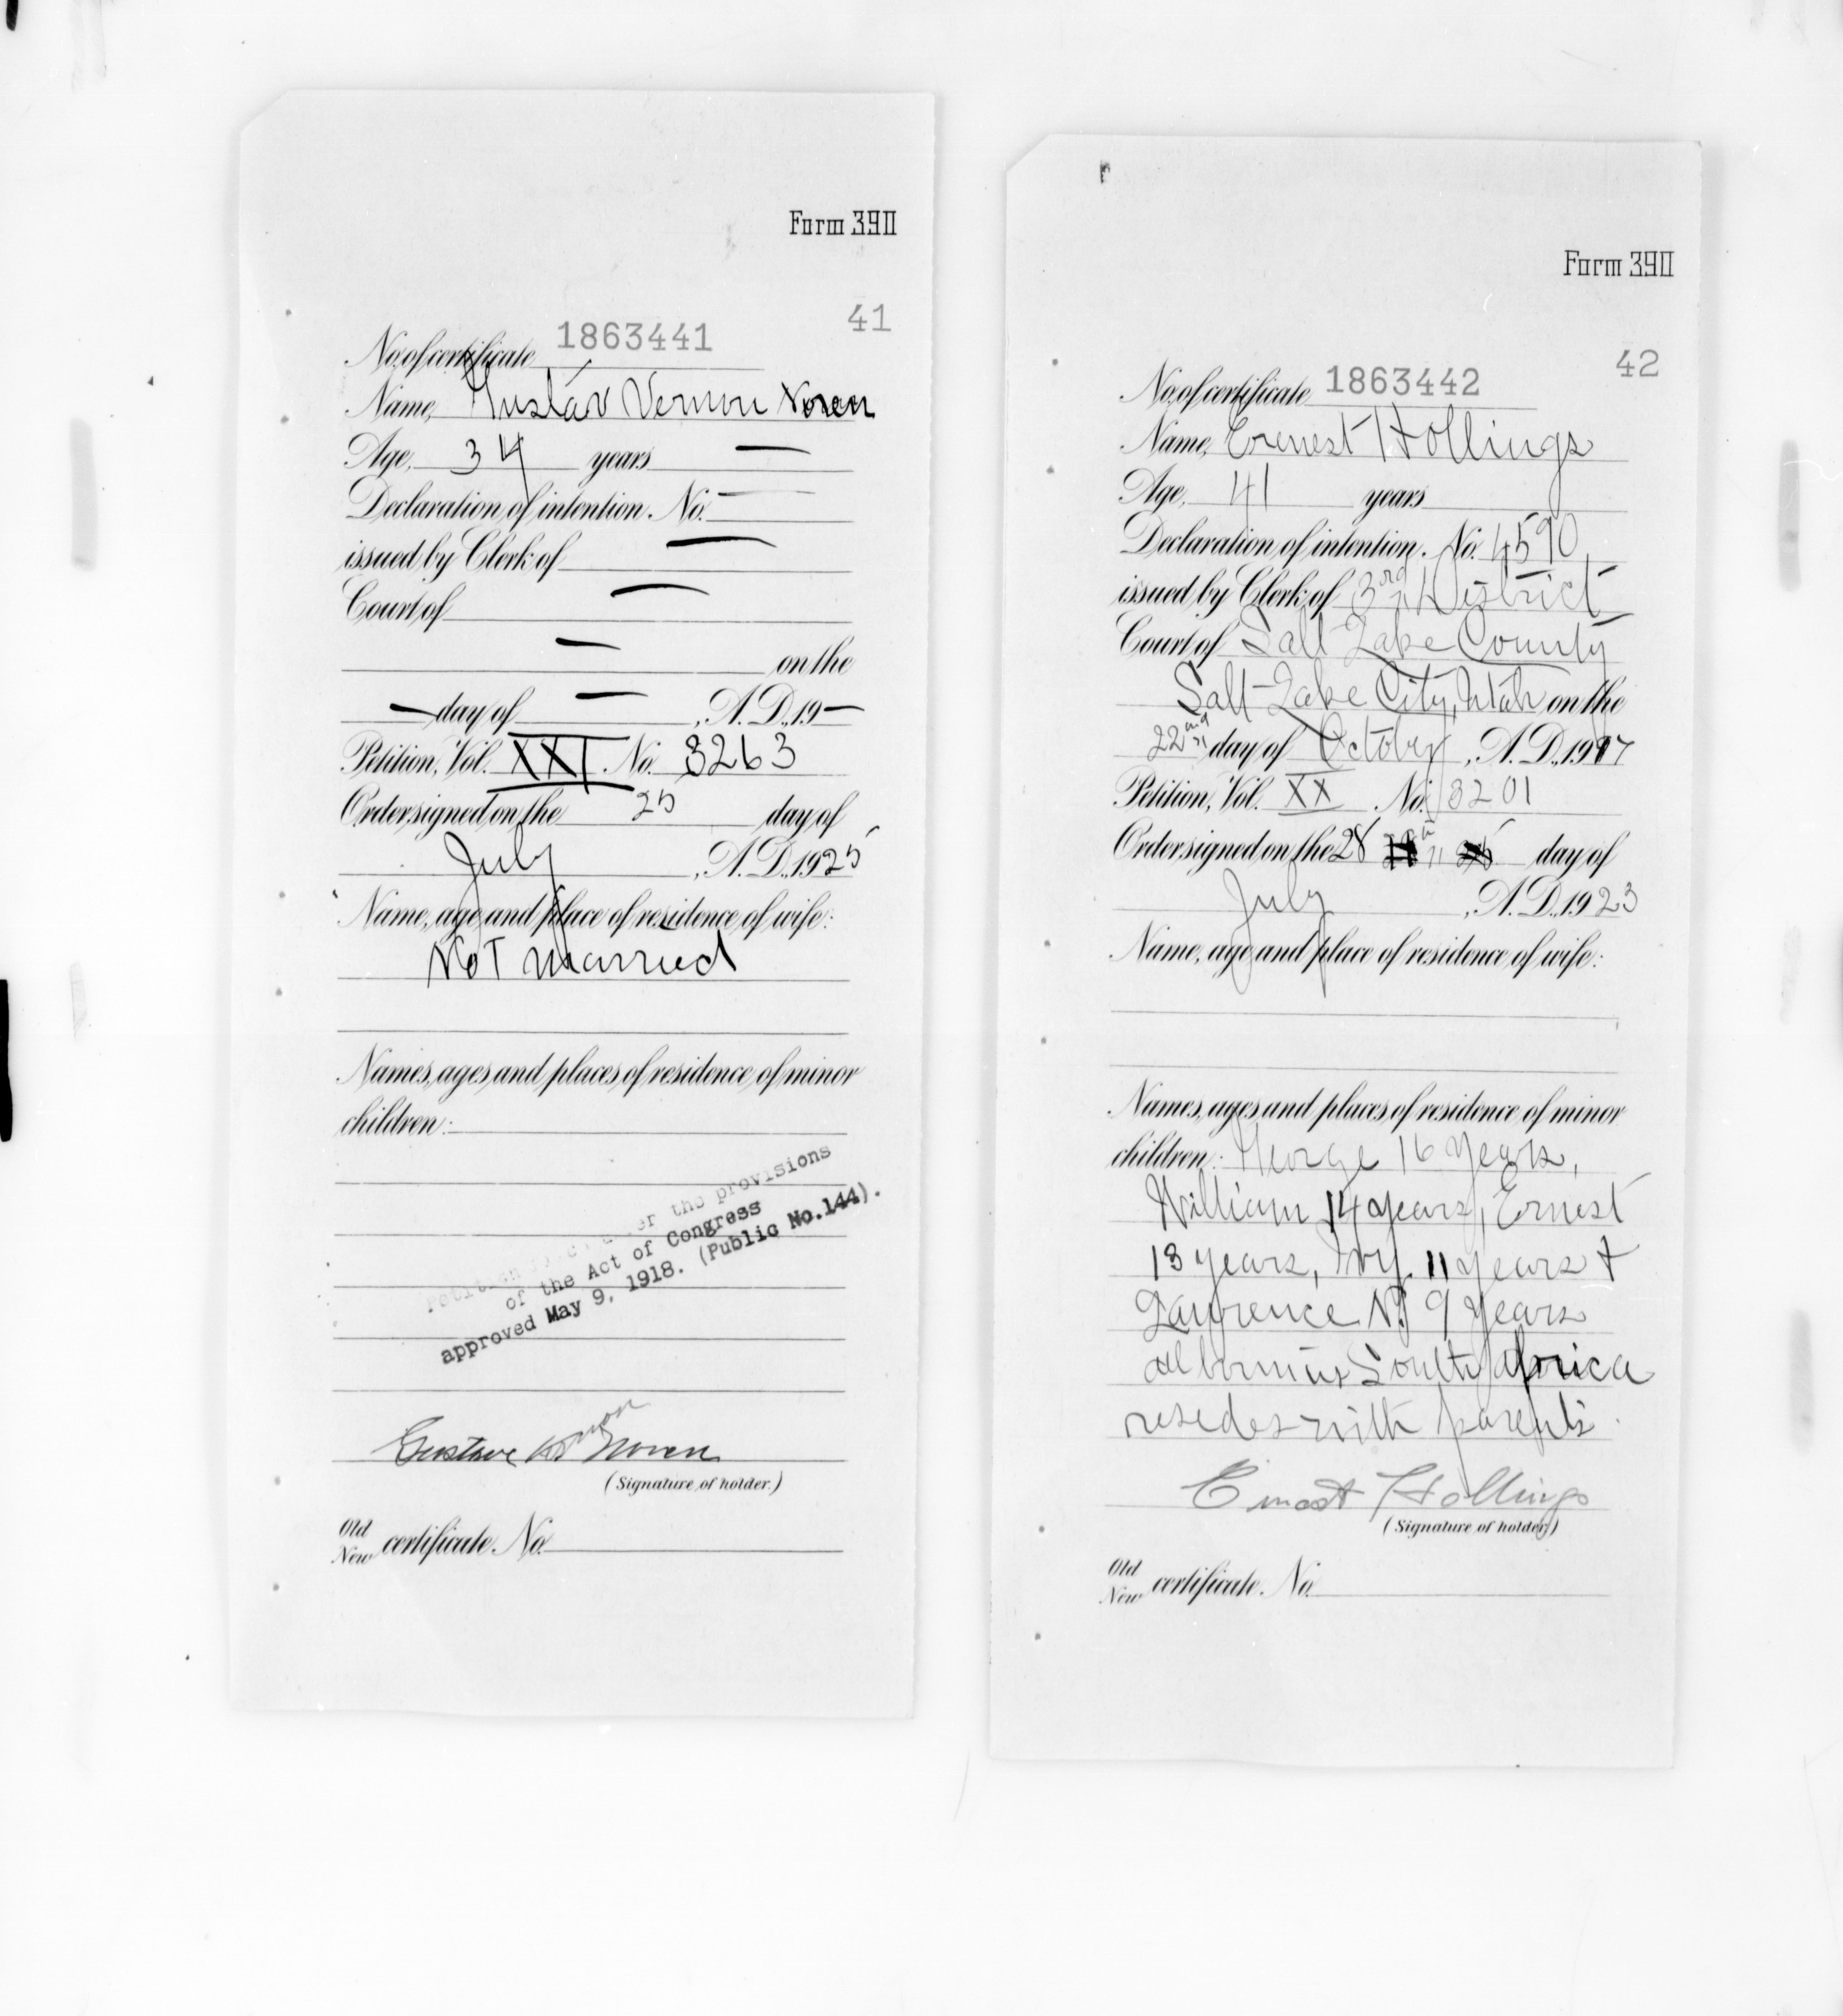 Form 390
41
No. of certificate 1863441
Name, Gustav Vernon Noren
Age, 34 years —
Declaration of intention. No. —
issued by Clerk of —
Court of —
— on the
— day of —, A.D., 19—
Petition, Vol. XXI. No. 3263
Order signed on the 25 day of
July, A.D., 1925
Name, age and place of residence of wife:
Not married
Names, ages and places of residence of minor
children:
er the provisions
of the Act of Congress
approved May 9, 1918. (Public No.144).
Gustave Vernon Noren
(Signature of holder.)
Old
New certificate No.
Form 390
42
No. of certificate 1863442
Name, Ernest Hollings
Age, 41 years
Declaration of intention. No. 4590
issued by Clerk of 3rd District
Court of Salt Lake County
Salt Lake City, Utah on the
22nd day of October, A.D., 1917
Petition, Vol. XX No. 3201
Order signed on the 28 day of
July, A.D., 1923
Name, age and place of residence of wife:
Names, ages and places of residence of minor
children: George 16 years,
William 14 years, Ernest
13 years, Ivy 11 years &
Lawrence N. 9 years
all born in South Africa
resides with parents.
Ernest Hollings
(Signature of holder)
Old
New certificate. No.